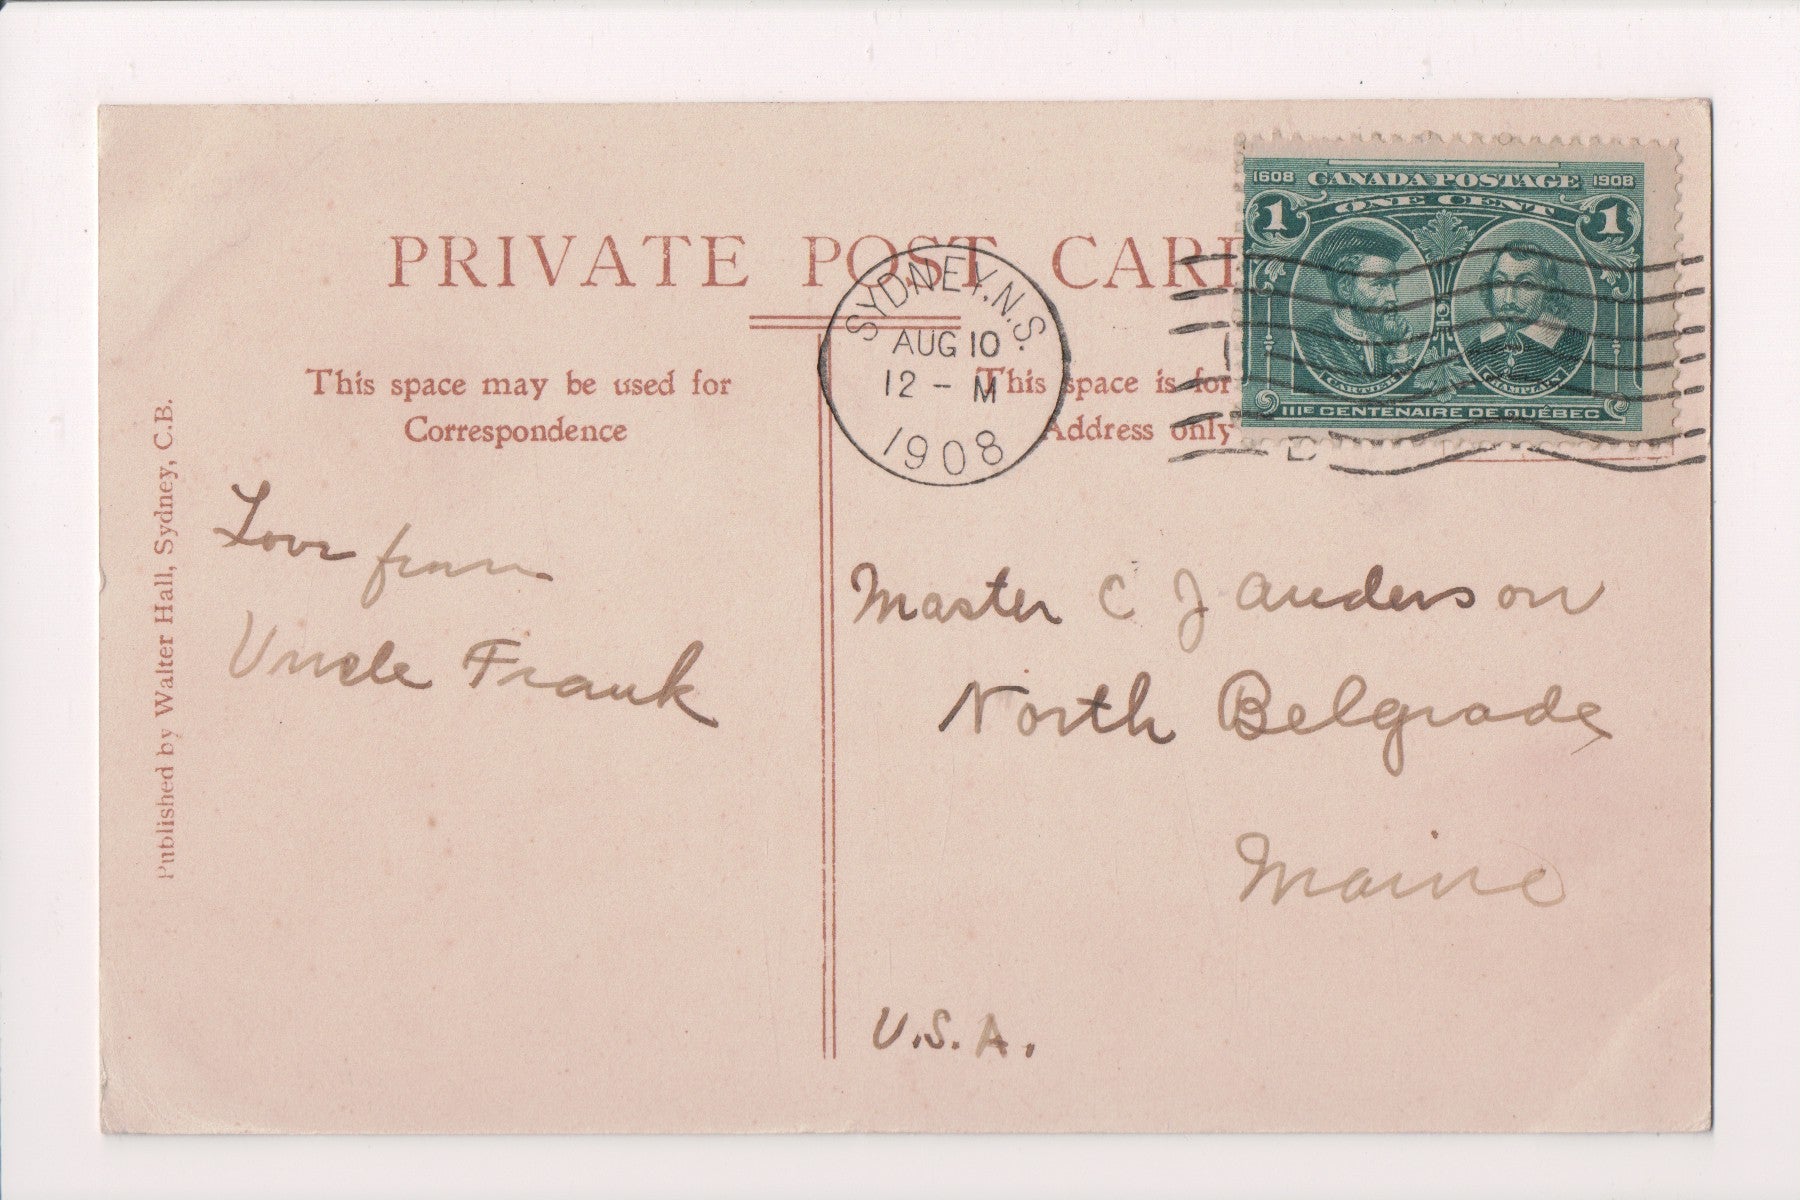 PRIVATE POST CAR
This space may be used for
Correspondence
This space is for
Address only
Published by Walter Hall, Sydney, C.B.
SYDNEY, N.S.
AUG 10
12 - M
1908
1608 CANADA POSTAGE 1908
1 ONE CENT 1
CARTIER CHAMPLAIN
IIIE CENTENAIRE DE QUÉBEC
Love from
Uncle Frank
Master C J Anderson
North Belgrade
Maine
U.S.A.